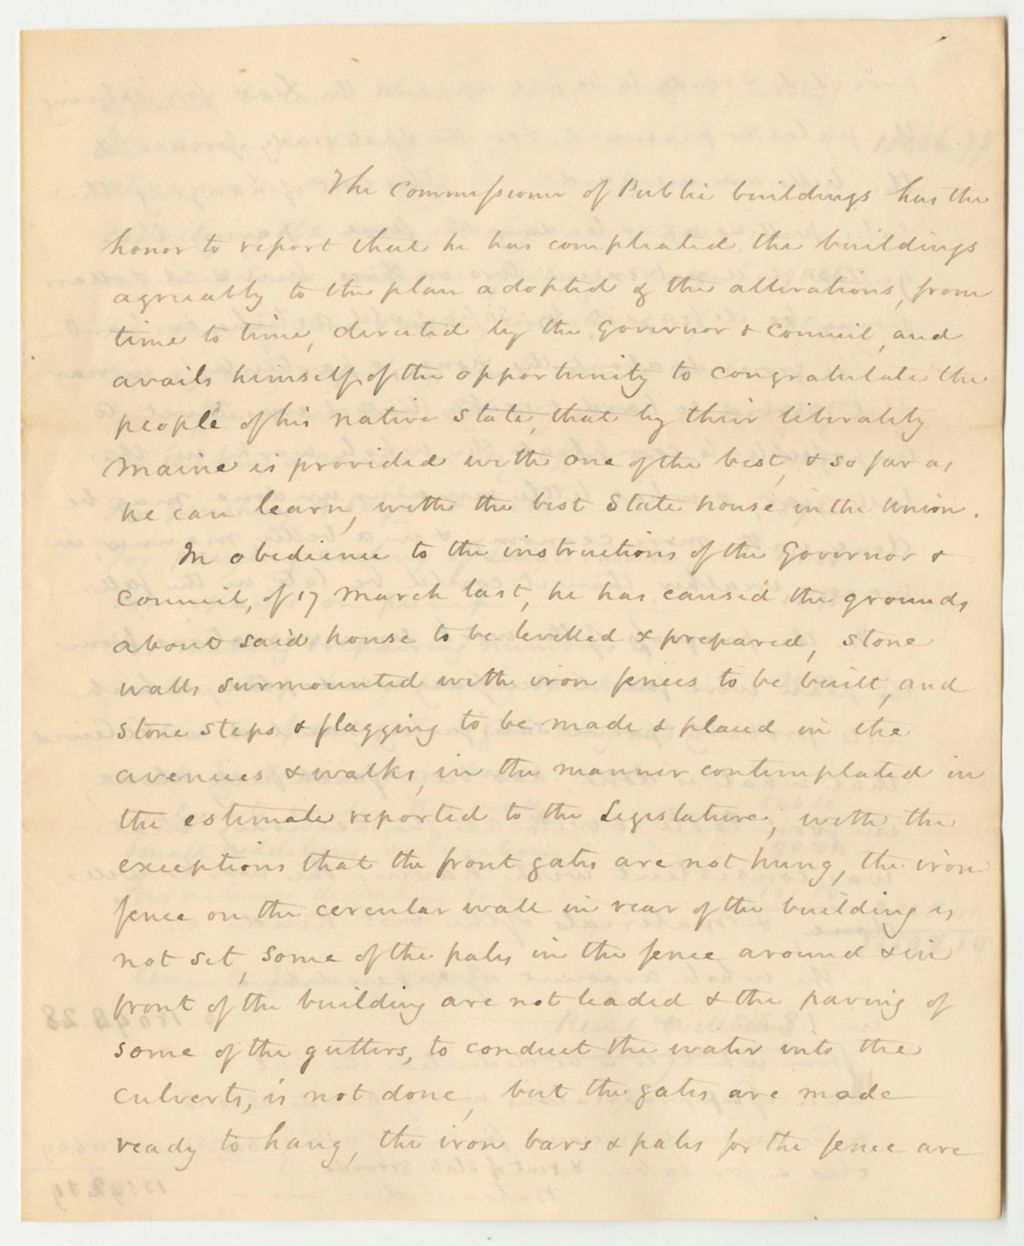 The Commissioner of Public buildings has the
honor to report that he has compleated the buildings
agreeably to the plan adopted & the alterations, from
time to time, directed by the Governor & Council, and
avails himself of the opportunity to congratulate the
people of his native State, that by their liberality
Maine is provided with one of the best, & so far as
he can learn, with the best State house in the Union.
In obedience to the instructions of the Governor &
Council, of 17 March last, he has caused the grounds
about said house to be levelled & prepared, stone
walls surmounted with iron fences to be built, and
stone steps & flagging to be made & placed in the
avenues & walks, in the manner contemplated in
the estimate reported to the Legislature, with the
exceptions that the front gates are not hung, the iron
fence on the cercular wall in rear of the building is
not set, some of the pales in the fence around & in
front of the building are not leaded & the paving of
some of the gutters, to conduct the water into the
culverts, is not done, but the gates are made
ready to hang, the iron bars & pales for the fence are